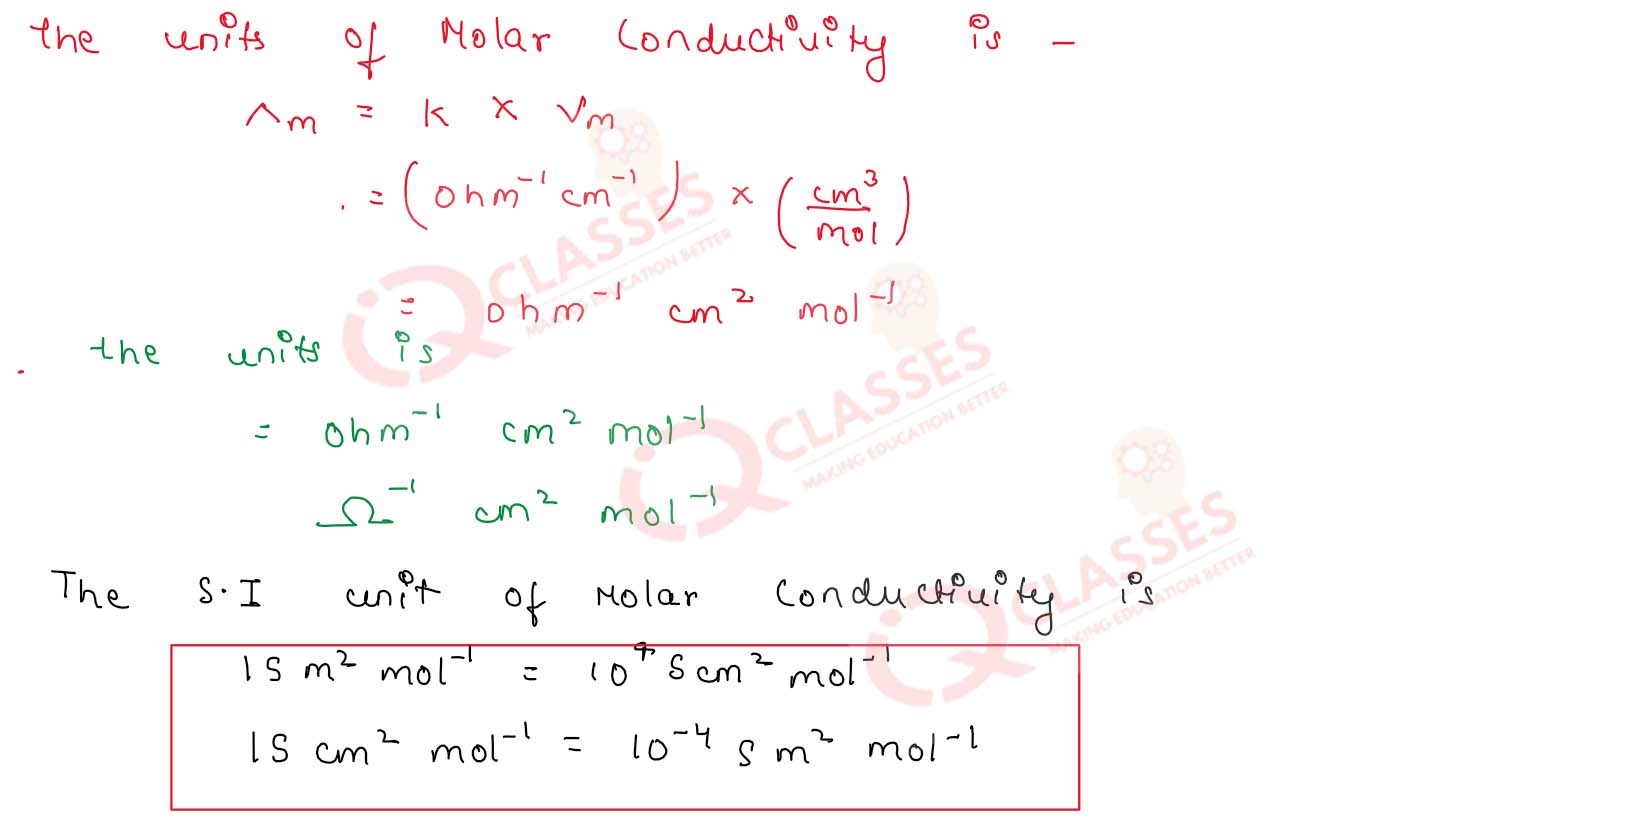 the units of Molar Conductivity is -
Λm = k × Vm
= (ohm⁻¹ cm⁻¹) × (cm³/mol)
= ohm⁻¹ cm² mol⁻¹
the units is
= ohm⁻¹ cm² mol⁻¹
Ω⁻¹ cm² mol⁻¹
The S.I unit of Molar Conductivity is
1S m² mol⁻¹ = 10⁴ S cm² mol⁻¹
1S cm² mol⁻¹ = 10⁻⁴ S m² mol⁻¹
iQ CLASSES
MAKING EDUCATION BETTER
iQ CLASSES
MAKING EDUCATION BETTER
iQ CLASSES
MAKING EDUCATION BETTER